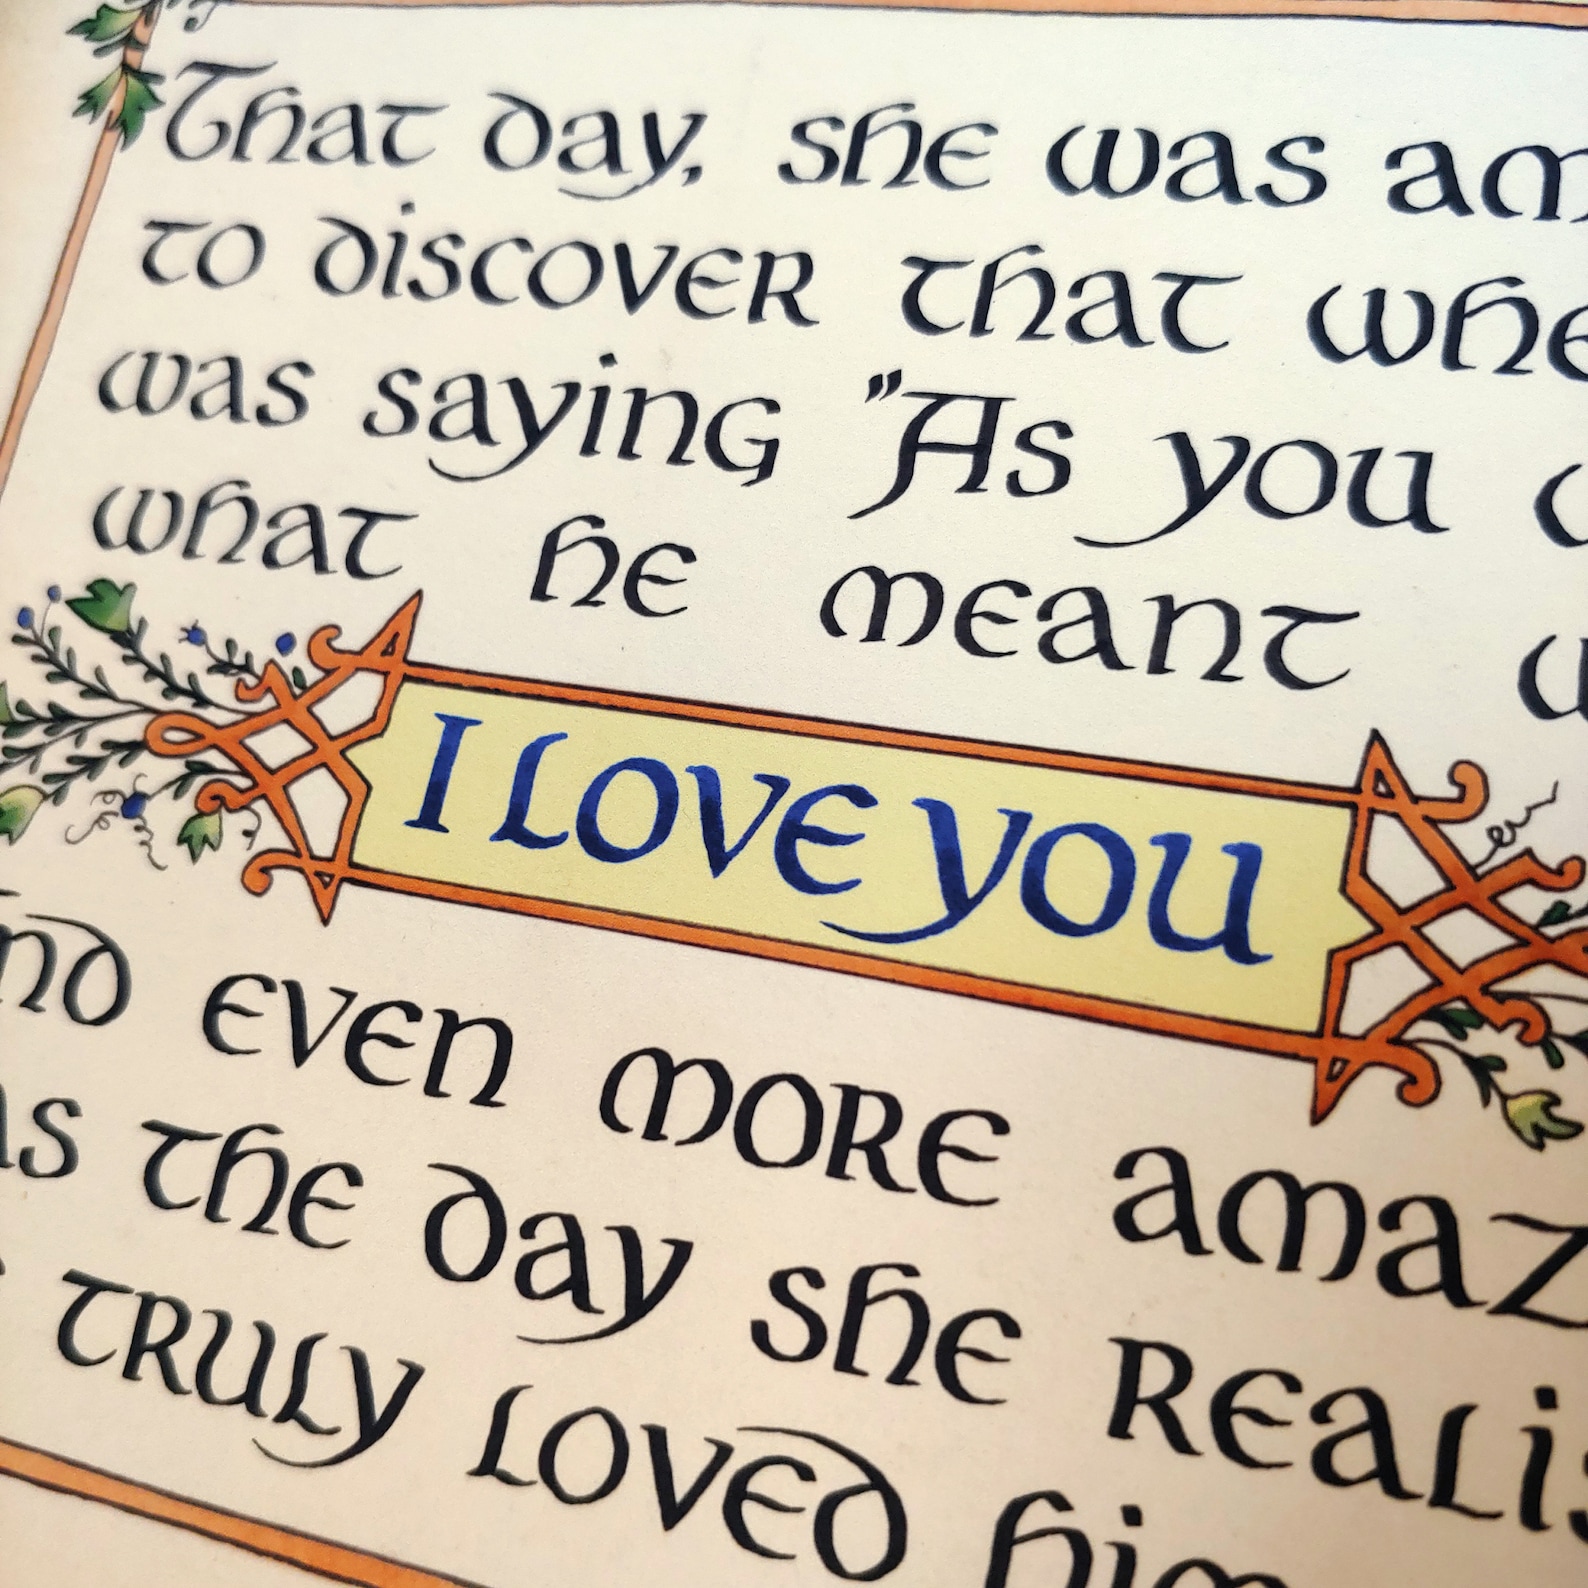 That day, she was am
to discover that whe
was saying "As you
what he meant
I Love you
nd even more amaz
as the day she realis
truly loved him